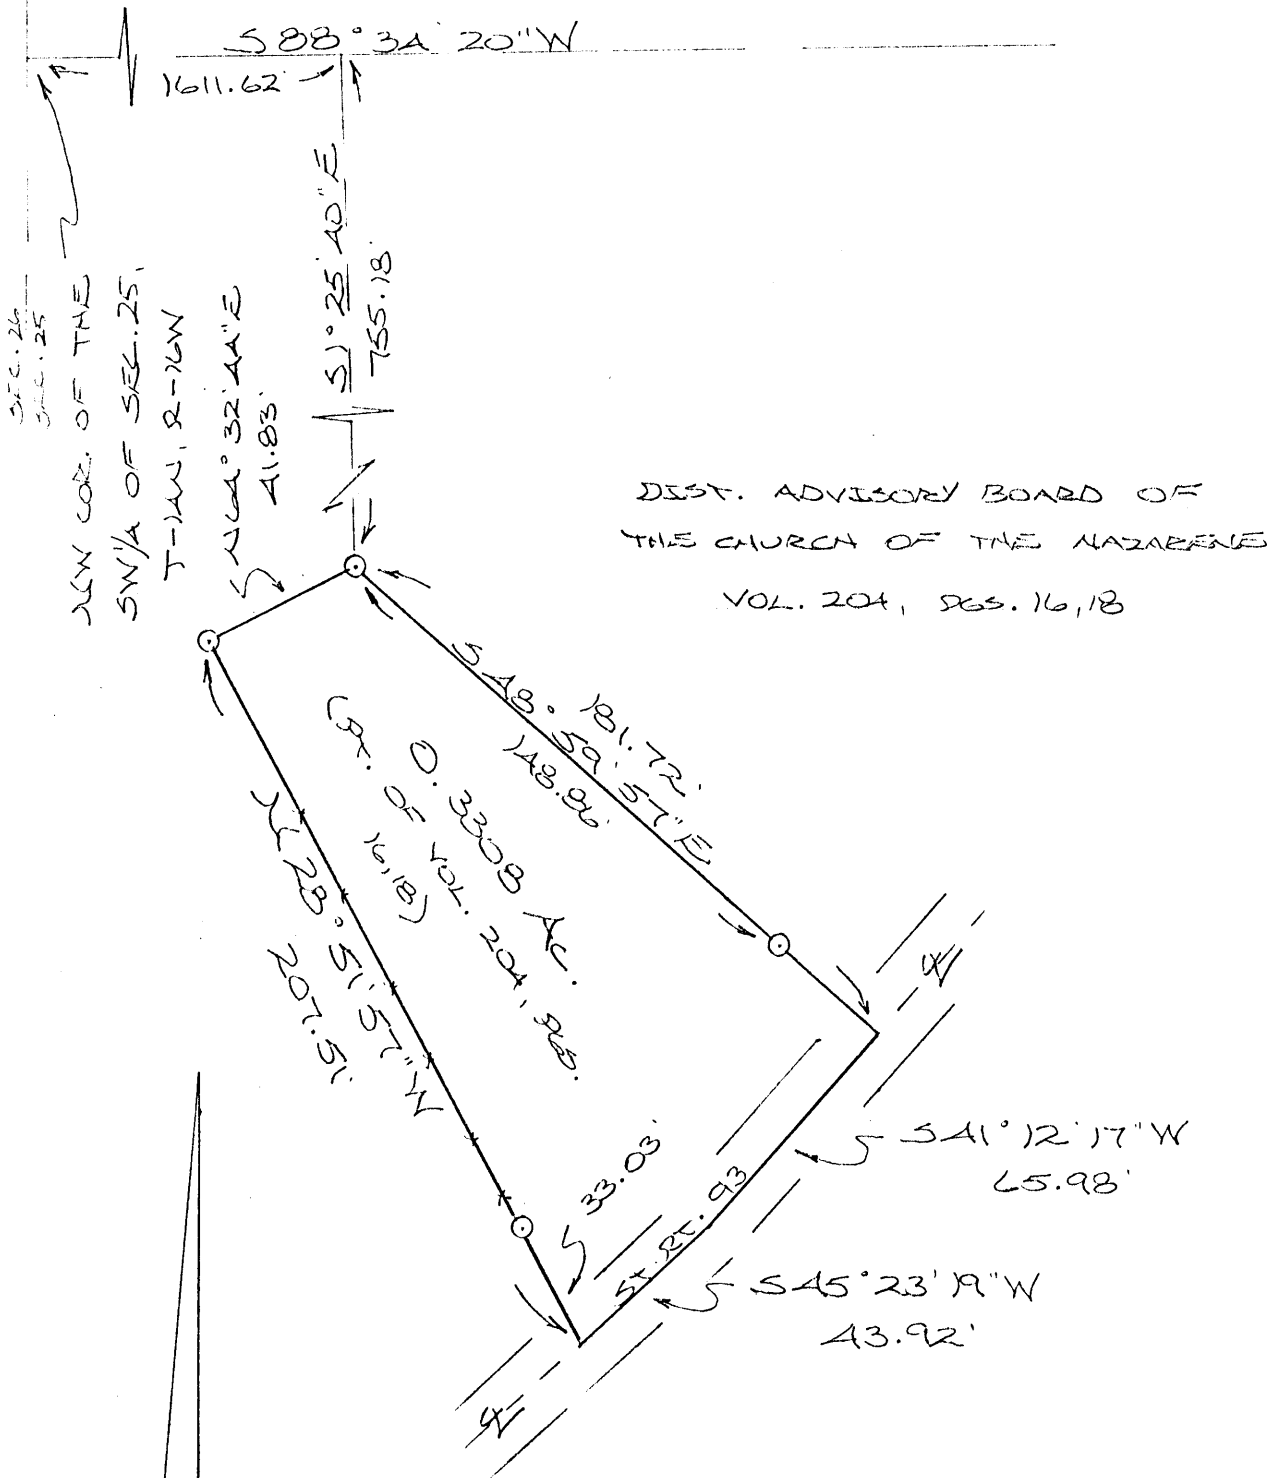 S 88° 34' 20" W
1611.62'
S 1° 25' 40" E
755.18'
SEC. 26
SEC. 25
NW COR. OF THE
SW 1/4 OF SEC. 25,
T-14N, R-16W
N 64° 32' 44" E
41.83'
DIST. ADVISORY BOARD OF
THE CHURCH OF THE NAZARENE
VOL. 204, PGS. 16,18
S 48° 59' 57" E
181.72'
148.86'
0.3308 Ac.
(PT. OF VOL. 204, PGS.
16,18)
N 28° 51' 57" W
207.51'
33.03'
ST. RT. 93
S 41° 12' 17" W
65.98'
S 45° 23' 19" W
43.92'